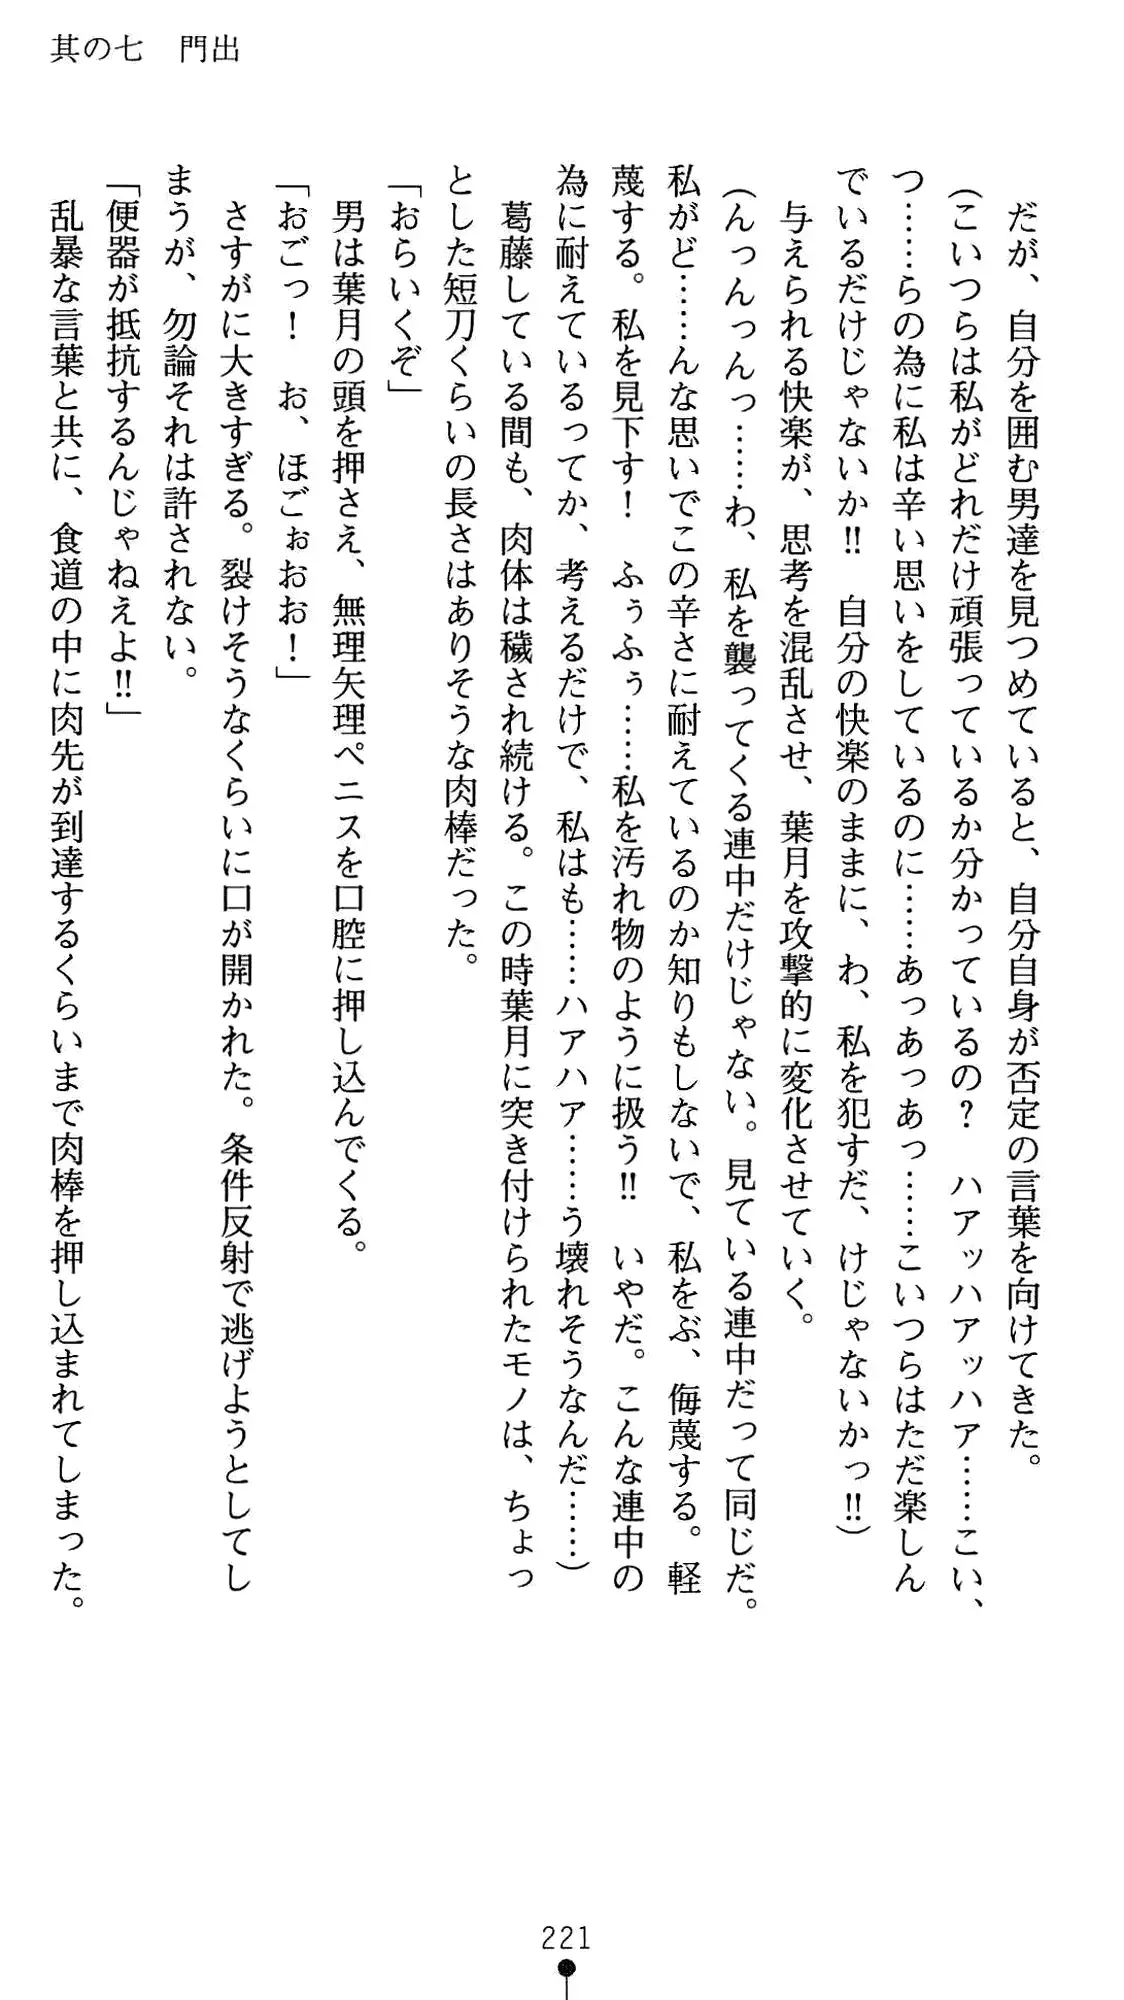 其の七　門出
だが、自分を囲む男達を見つめていると、自分自身が否定の言葉を向けてきた。
（こいつらは私がどれだけ頑張っているか分かっているの？　ハアッハアッハア……こい、
つ……らの為に私は辛い思いをしているのに……あっあっあっ……こいつらはただ楽しん
でいるだけじゃないか‼　自分の快楽のままに、わ、私を犯すだ、けじゃないかっ‼）
与えられる快楽が、思考を混乱させ、葉月を攻撃的に変化させていく。
（んっんっんっ……わ、私を襲ってくる連中だけじゃない。見ている連中だって同じだ。
私がど……んな思いでこの辛さに耐えているのか知りもしないで、私をぶ、侮蔑する。軽
蔑する。私を見下す！　ふぅふぅ……私を汚れ物のように扱う‼　いやだ。こんな連中の
為に耐えているってか、考えるだけで、私はも……ハアハア……う壊れそうなんだ……）
葛藤している間も、肉体は穢され続ける。この時葉月に突き付けられたモノは、ちょっ
とした短刀くらいの長さはありそうな肉棒だった。
「おらいくぞ」
男は葉月の頭を押さえ、無理矢理ペニスを口腔に押し込んでくる。
「おごっ！　お、ほごぉおお！」
さすがに大きすぎる。裂けそうなくらいに口が開かれた。条件反射で逃げようとしてし
まうが、勿論それは許されない。
「便器が抵抗するんじゃねえよ‼」
乱暴な言葉と共に、食道の中に肉先が到達するくらいまで肉棒を押し込まれてしまった。
221